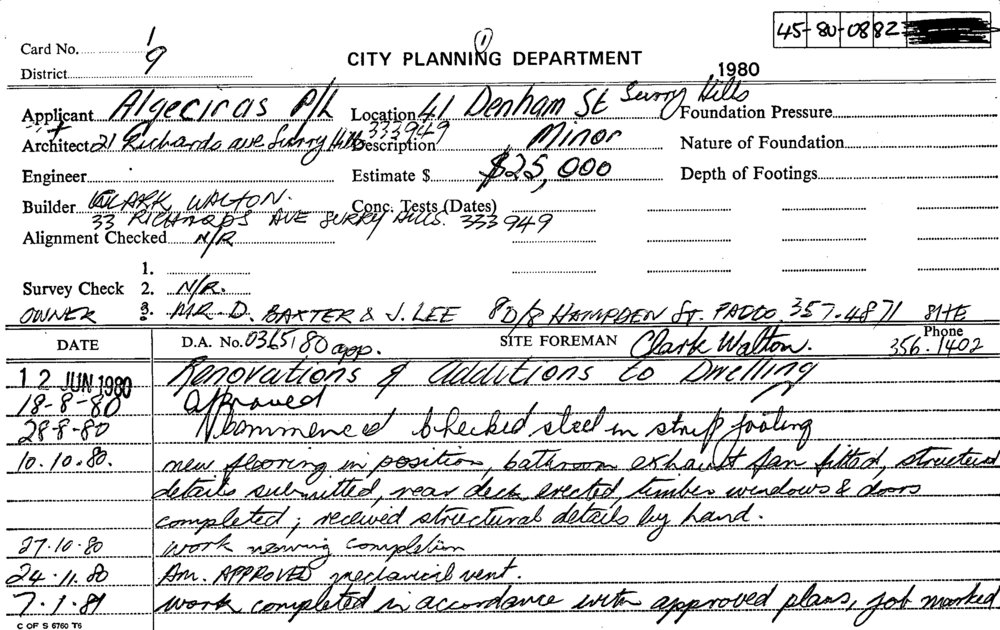 45-80-0882
Card No. 1
9
District
CITY PLANNING DEPARTMENT
1
1980
Applicant Algeciras P/L
Location 41 Denham St Surry Hills
Foundation Pressure
Architect 21 Richards ave Surry Hills
333949
Description Minor
Nature of Foundation
Engineer
Estimate $ $25,000
Depth of Footings
Builder CLARK WALTON.
33 RICHARDS AVE SURRY HILLS. 333949
Conc. Tests (Dates)
Alignment Checked N/R
1.
Survey Check 2. N/R.
OWNER 3. MR D. BAXTER & J. LEE 8D/8 HAMPDEN St. PADDO. 357.4871
DATE
D.A. No. 0365/80 app.
SITE FOREMAN Clark Walton.
Phone
356.1402
12 JUN 1980 Renovations & additions to Dwelling
18-8-80 approved
28-8-80 commenced checked steel in strip footing
10.10.80. new flooring in position, bathroom exhaust fan fitted, structural
details submitted, rear deck erected, timber windows & doors
completed; received structural details by hand.
27.10.80 work nearing completion
24.11.80 Am. APPROVED mechanical vent.
7.1.81 work completed in accordance with approved plans, job marked
C OF S 6760 T6